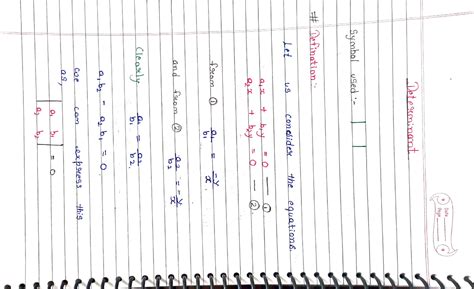 Determinant
Symbol used :- | |
# Defination:-
Let us condider the equations.
a₁x + b₁y = 0 — ①
a₂x + b₂y = 0 — ②
from ① a₁/b₁ = -y/x
and from ② a₂/b₂ = -y/x
Clearly a₁/b₁ = a₂/b₂
a₁b₂ - a₂b₁ = 0.
we can express this
as,
| a₁ b₁ |
| a₂ b₂ | = 0